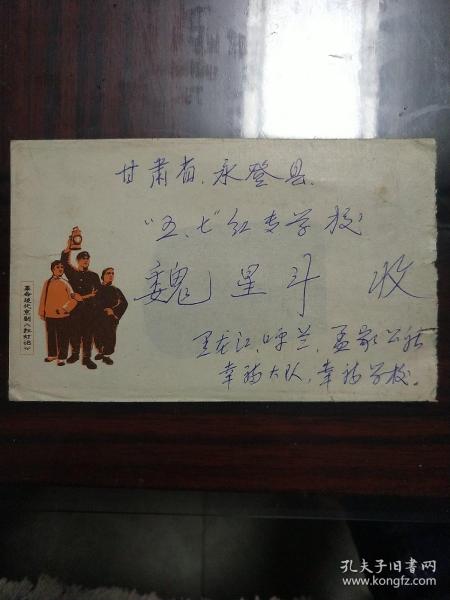 甘肃省.永登县.
"五.七"红专学校
魏星斗 收
黑龙江.呼兰.孟家公社
幸福大队.幸福学校.
革命现代京剧《红灯记》
孔夫子旧书网
www.kongfz.com